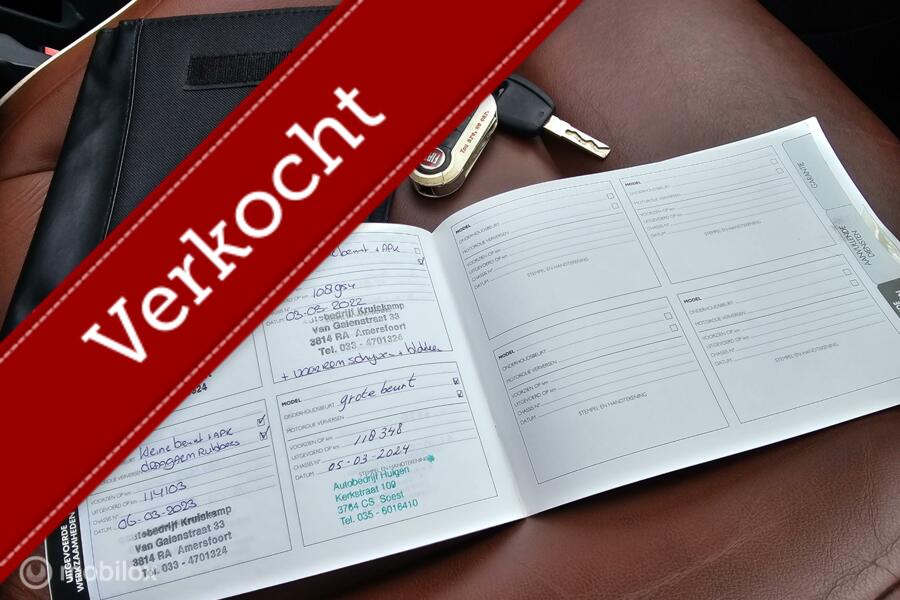 Verkocht
Tau are, we car.
beurt + APK
108954
03-03-2022
Autobedrijf Kruiskamp
Van Galenstraat 33
3814 RA Amersfoort
Tel. 033 - 4701324
+ voorrem schijven + blokken
kleine beurt + APK
draagarm Rubbers
VOORZIEN OP km
UITGEVOERD OP km
114103
CHASSIS N°
DATUM
06-03-2023
Autobedrijf Kruiskamp
Van Galenstraat 33
3814 RA Amersfoort
Tel. 033 - 4701324
MODEL
ONDERHOUDSBEURT
grote beurt
MOTOROLIE VERVERSEN
VOORZIEN OP km
UITGEVOERD OP km
118348
CHASSIS N°
DATUM
05-03-2024
STEMPEL EN HANDTEKENING
Autobedrijf Huigen
Kerkstraat 109
3764 CS Soest
Tel. 035 - 6016410
UITGEVOERDE
WERKZAAMHEDEN
MODEL
ONDERHOUDSBEURT
MOTOROLIE VERVERSEN
VOORZIEN OP km
UITGEVOERD OP km
CHASSIS N°
DATUM
STEMPEL EN HANDTEKENING
MODEL
ONDERHOUDSBEURT
MOTOROLIE VERVERSEN
VOORZIEN OP km
UITGEVOERD OP km
CHASSIS N°
DATUM
STEMPEL EN HANDTEKENING
MODEL
ONDERHOUDSBEURT
MOTOROLIE VERVERSEN
VOORZIEN OP km
UITGEVOERD OP km
CHASSIS N°
DATUM
STEMPEL EN HANDTEKENING
MODEL
ONDERHOUDSBEURT
MOTOROLIE VERVERSEN
VOORZIEN OP km
UITGEVOERD OP km
CHASSIS N°
DATUM
STEMPEL EN HANDTEKENING
GARANTIE
AANVULLENDE
DIENSTEN
mobilox